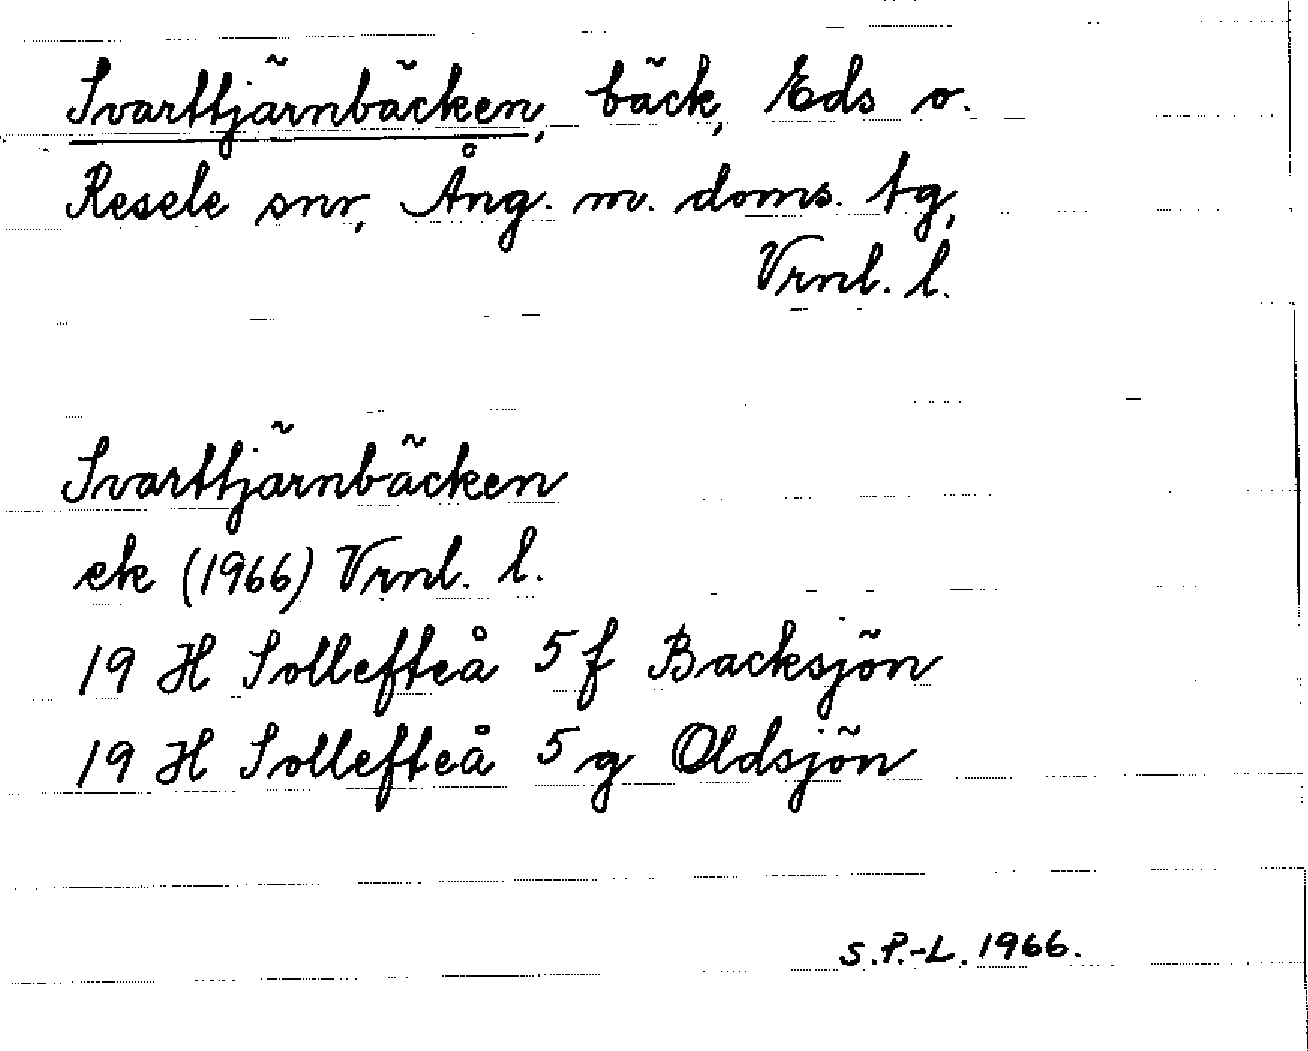 Svarttjärnbäcken, bäck, Eds o.
Resele snr, Ång. m. doms. tg,
Vrnl. l.
Svarttjärnbäcken
ek (1966) Vrnl. l.
19 H Sollefteå 5 f Backsjön
19 H Sollefteå 5 g Oldsjön
S.P.-L. 1966.